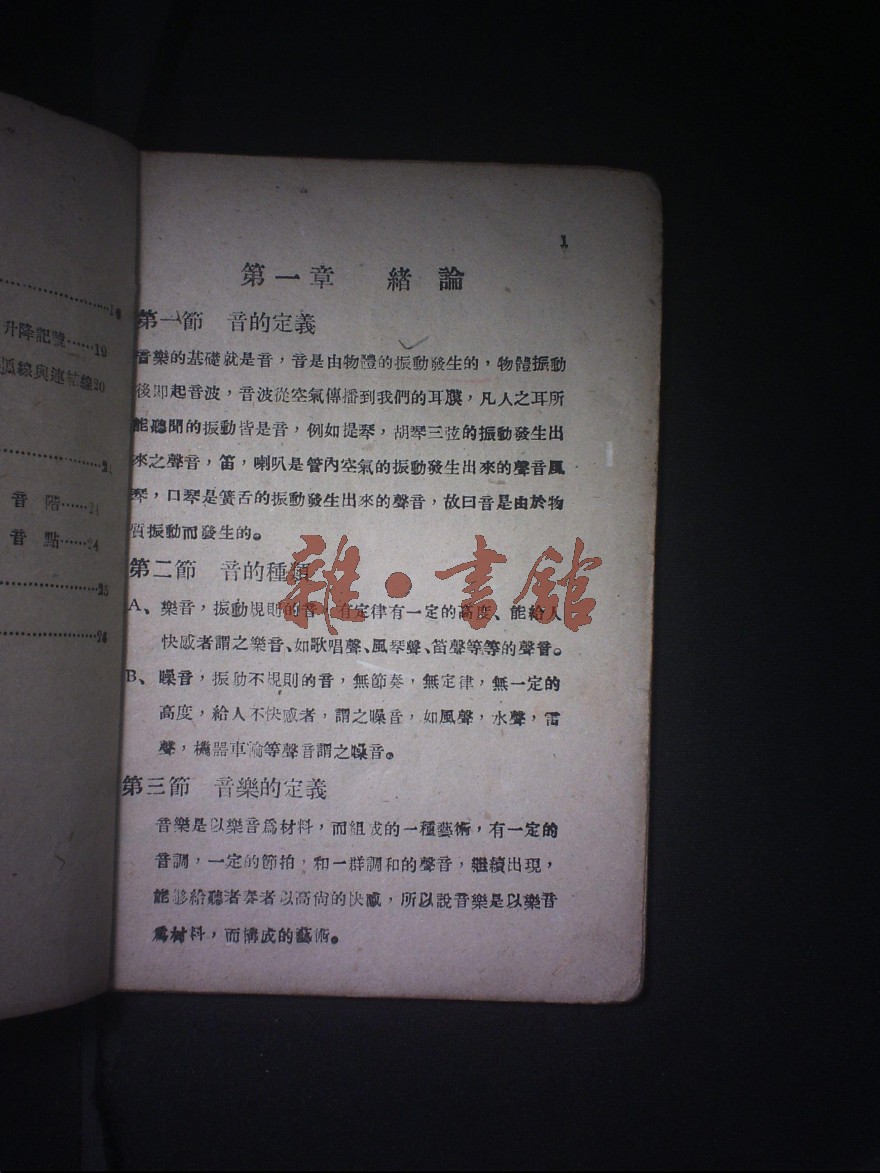 升降記號……19
弧線與連結線20
音階……21
音點……24
25
26
1
第一章 緒論
第一節 音的定義
音樂的基礎就是音，音是由物體的振動發生的，物體振動
後即起音波，音波從空氣傳播到我們的耳膜，凡人之耳所
能聽聞的振動皆是音，例如提琴，胡琴三弦的振動發生出
來之聲音，笛，喇叭是管內空氣的振動發生出來的聲音風
琴，口琴是簧舌的振動發生出來的聲音，故曰音是由於物
質振動而發生的。
第二節 音的種類
A、樂音，振動規則的音，有定律有一定的高度、能給人
快感者謂之樂音、如歌唱聲、風琴聲、笛聲等等的聲音。
B、噪音，振動不規則的音，無節奏，無定律，無一定的
高度，給人不快感者，謂之噪音，如風聲，水聲，雷
聲，機器車輪等聲音謂之噪音。
第三節 音樂的定義
音樂是以樂音爲材料，而組成的一種藝術，有一定的
音調，一定的節拍，和一群調和的聲音，繼續出現，
能够給聽者奏者以高尙的快感，所以說音樂是以樂音
爲材料，而構成的藝術。
雜·書館